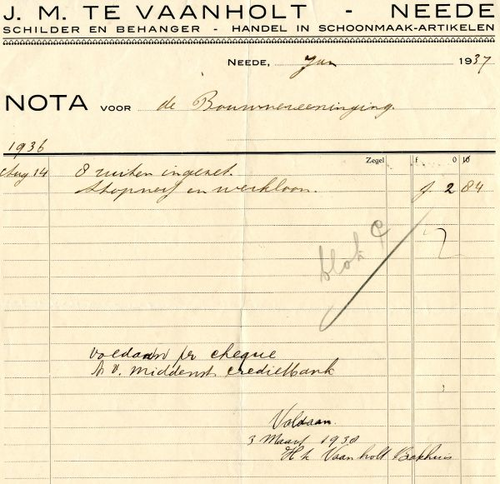 J. M. TE VAANHOLT - NEEDE
SCHILDER EN BEHANGER - HANDEL IN SCHOONMAAK-ARTIKELEN
NEEDE, Jan 1937
NOTA VOOR de Bouwvereeniging.
1936
Zegel f 0 10
Aug 14 8 ruiten ingezet.
Stopverf en werkloon. f 2 84
blok
voldaan per cheque
N.V. Middenst. credietbank
Voldaan.
3 Maart 1938
H te Vaanholt